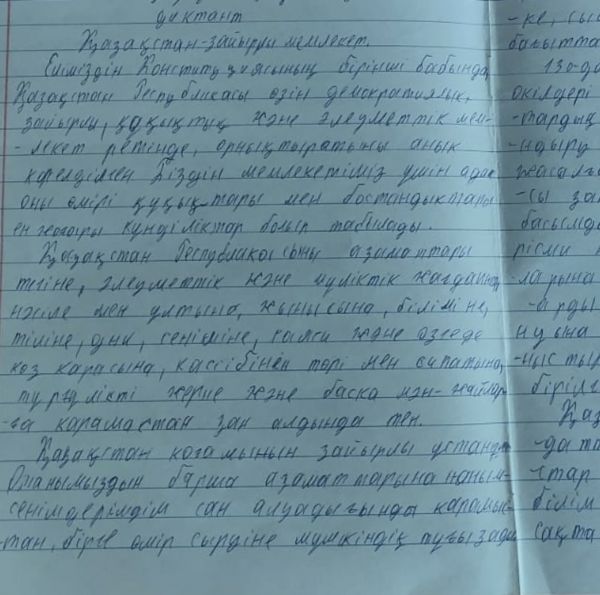 диктант
Қазақстан-зайырлы мемлекет.
Еліміздің Конституциясының бірінші бабында
Қазақстан Республикасы өзін демократиялық,
зайырлы, құқықтық және әлеуметтік мем-
-лекет ретінде, орнықтыратыны анық
көрсілген Біздің мемлекетіміз үшін адам
оны өмірі құқықтары мен бостандықтары
ең жоғары құнділіктар болып табылады.
Қазақстан Республикасыны азаматтары
тегіне, әлеуметтік және мүліктік жағдайына,
нәсіле мен ұлтына, жынысына, біліміне,
тіліне, діни, сеніміне, саяси және өзгеде
көз қарасына, кәссібінен торі мен сипатына,
тұрғұлікті жеріне және басқа мән-жайлар-
-ға қарамастан заң алдында тең.
Қазақстан қоғамының зайырлы ұстанды
Отанымыздың барша азаматтарына наным-
сенімдерімдім сан алуадығында қарамыс-
-тан, бірге өмір сырдіне мүмкіндік туғызады
-ке, сы
бағытта
130-да
өкілдері
-тардың
-ндыру
жасалғ
-сы за
басымды
рісми
-ларына
-арды
нұына
-ныстыр
бірілг
Қаз
-да та
-стар
білім
сақта